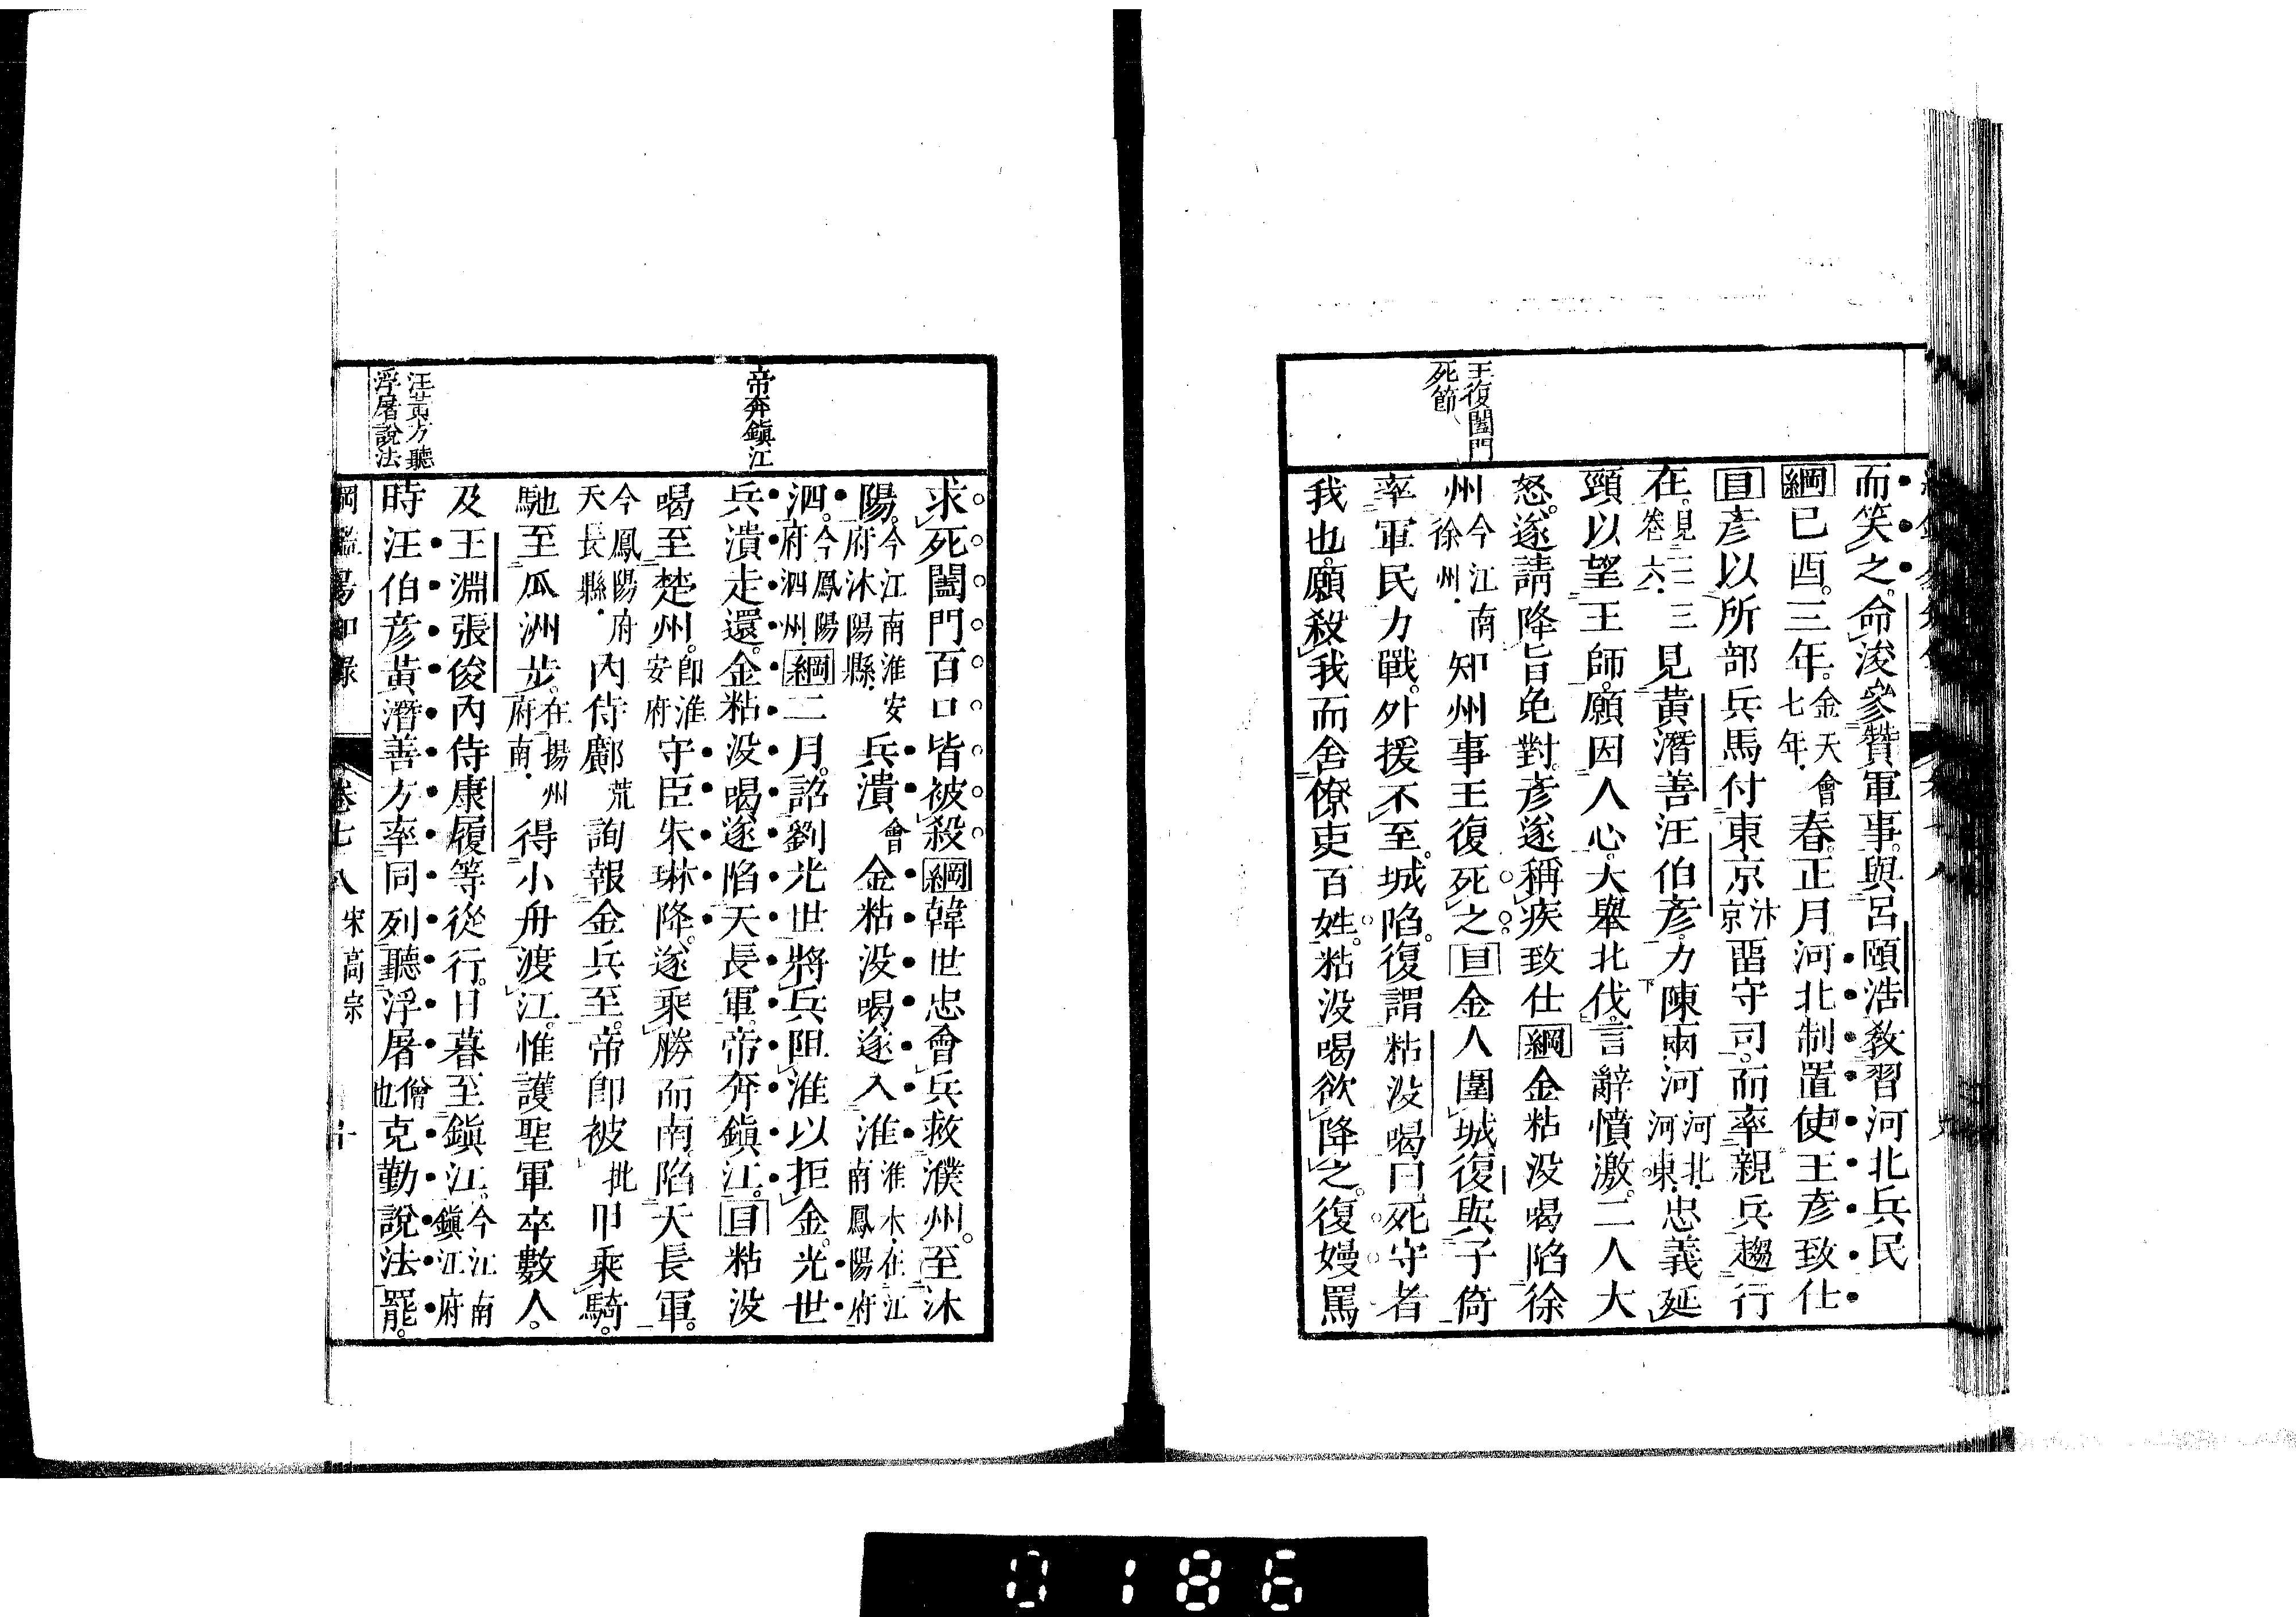 王復闔門
死節
而笑之。命浚參贊軍事。與呂頤浩教習河北兵民
綱己酉。三年。金天會七年。春。正月河北制置使王彥致仕
目彥以所部兵馬付東京汴京留守司。而率親兵趨行
在。見二三卷六。見黃潛善汪伯彥。力陳兩河河北、河東。忠義延
頸以望王師。願因人心。大舉北伐。言辭憤激。二人大
怒。遂請降旨免對。彥遂稱疾致仕綱金粘没喝陷徐
州今江南徐州。知州事王復死之。目金人圍城。復與子倚
率軍民力戰。外援不至。城陷。復謂粘没喝曰。死守者
我也。願殺我而舍僚吏百姓。粘没喝欲降之。復嫚罵
帝奔鎭江
汪黃方聽
浮屠說法
求死。闔門百口皆被殺綱韓世忠會兵救濮州。至沐
陽。今江南淮安府沐陽縣。兵潰會金粘没喝遂入淮淮水、在江南鳳陽府
泗。今鳳陽府泗州。綱二月。詔劉光世將兵阻淮以拒金。光世
兵潰走還。金粘没喝遂陷天長軍。帝奔鎭江。目粘没
喝至楚州。卽淮安府守臣朱琳降。遂乘勝而南。陷天長軍。
今鳳陽府天長縣。內侍鄺荒詢報金兵至。帝卽被批甲乘騎。
馳至瓜洲步。在揚州府南。得小舟渡江。惟護聖軍卒數人。
及王淵張俊內侍康履等從行。日暮至鎭江。今江南鎭江府
時汪伯彥黃潛善方率同列聽浮屠僧也克勤說法。罷。
綱鑑易知錄 卷七八 宋高宗 十